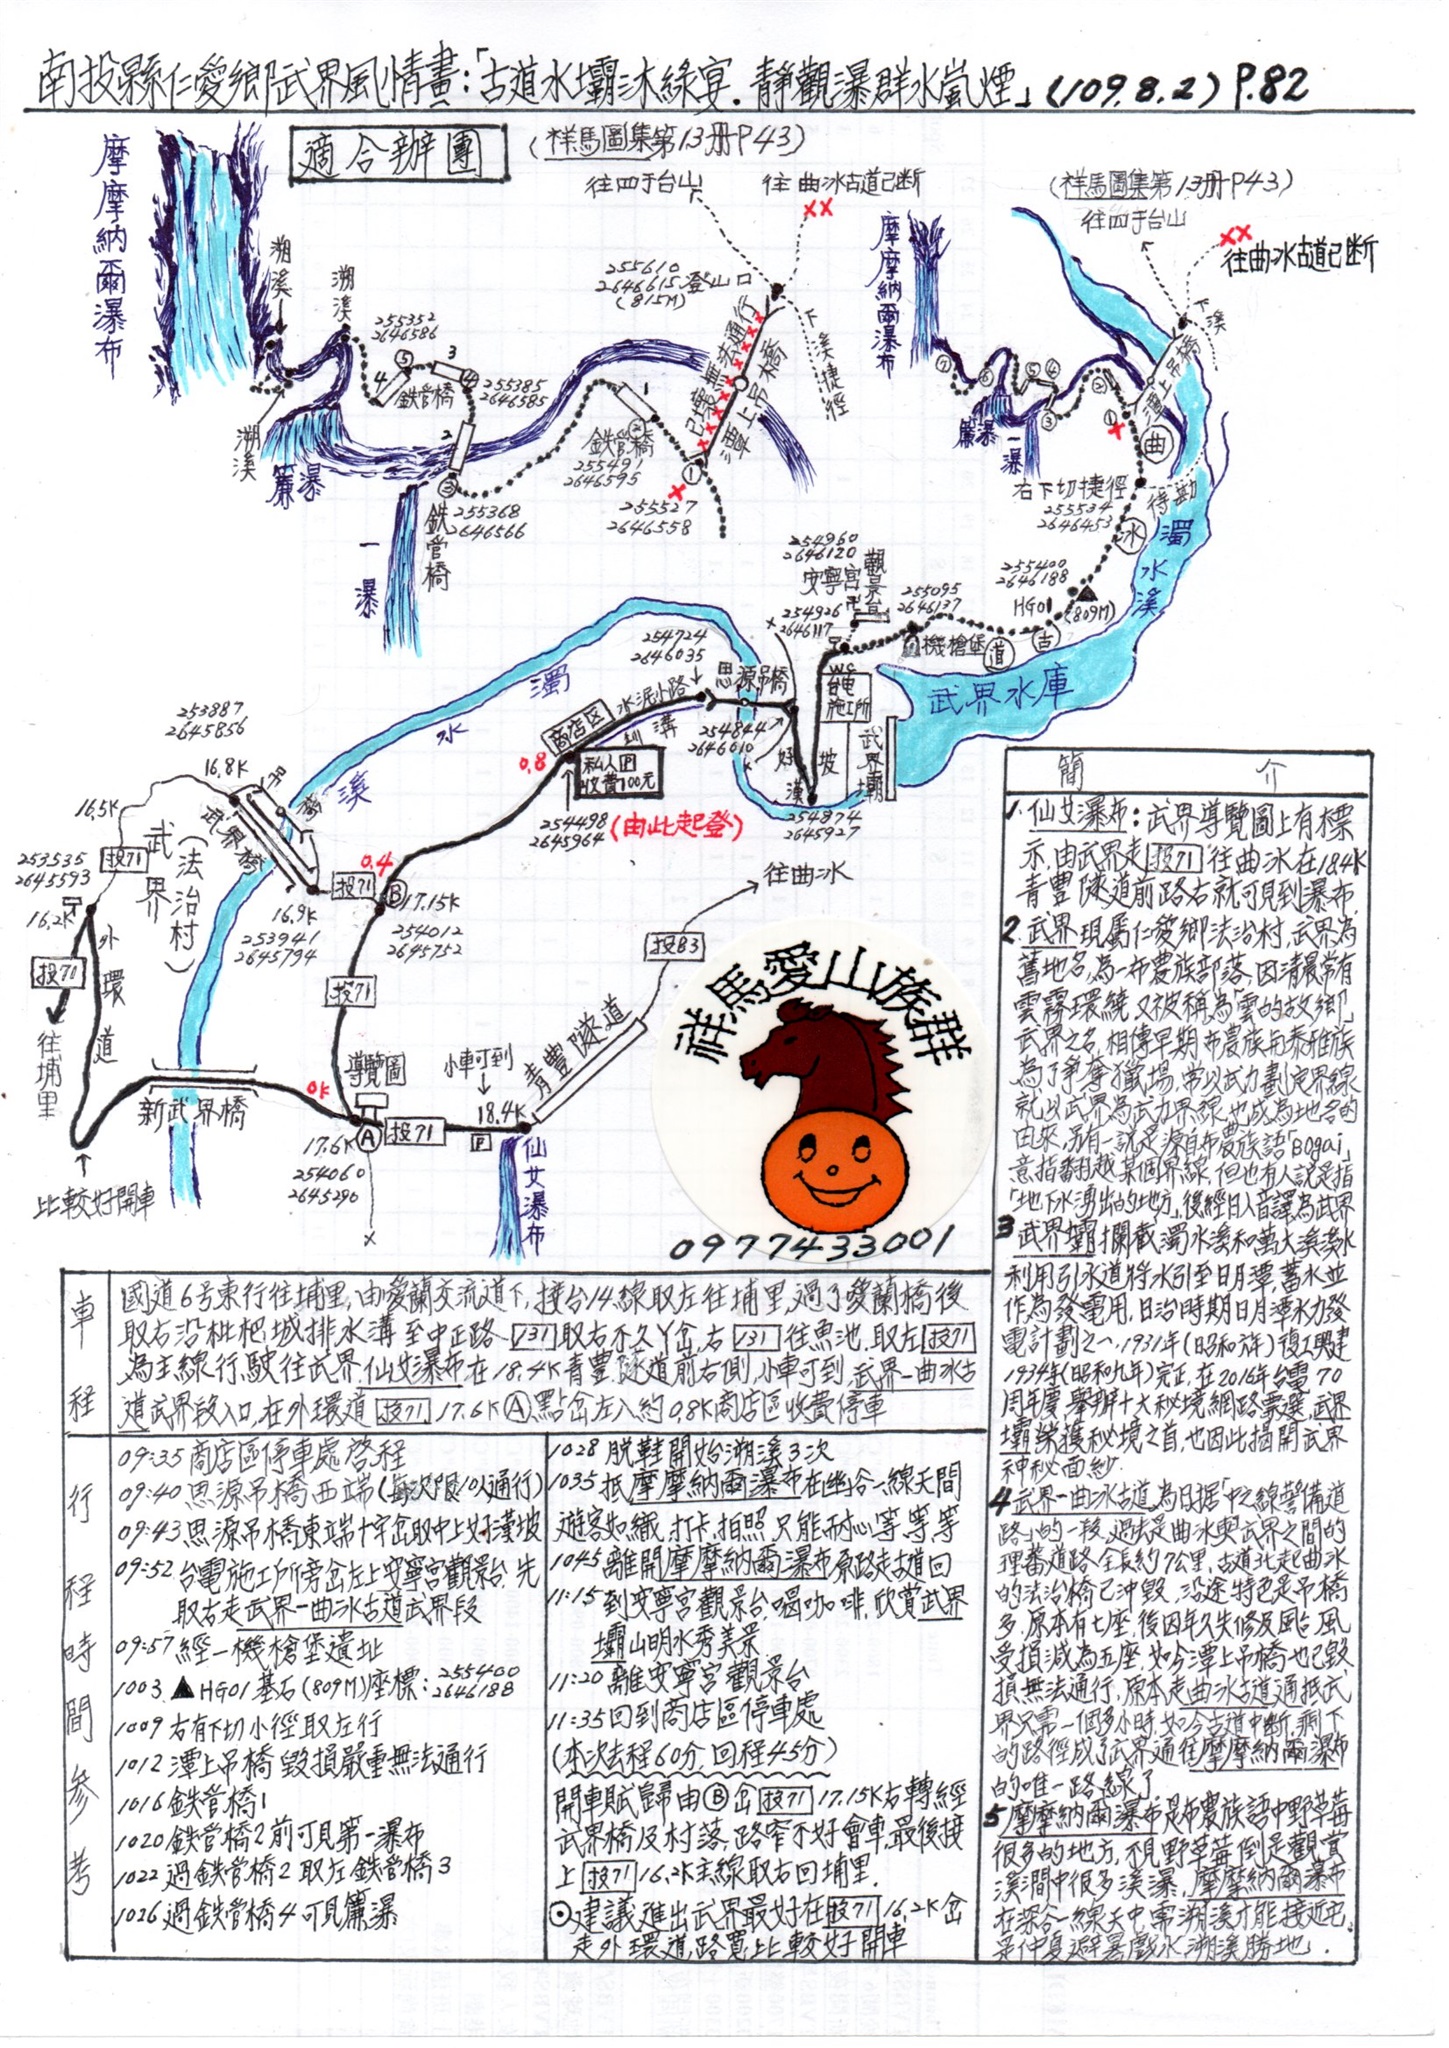 南投縣仁愛鄉武界風情畫:「古道水壩沐綠宴.靜觀瀑群水嵐煙」(109.8.2) P.82
適合辦團
(祥馬圖集第13册P43)
往四子台山
往曲冰古道已斷
(祥馬圖集第13册P43)
往四子台山
往曲冰古道已斷
摩摩納爾瀑布
溯溪
溯溪
溯溪
255352
2646586
鉄管橋
255385
2646585
255610
2646615登山口
(815M)
已壞無法通行
潭上吊橋
下溪捷徑
鉄管橋
255491
2646595
簾瀑
一瀑
鉄管橋
255368
2646566
255527
2646558
摩摩納爾瀑布
簾瀑
一瀑
潭上吊橋
下溪
右下切捷徑
255534
2646453
待勘
曲
冰
古
道
濁水溪
255400
2646188
HG01
(809M)
254960
2646120
安寧宮
觀景台
254926
2646117
255095
2646137
機槍堡
WC
台電施工所
武界水庫
武界壩
254724
2646035
思源吊橋
254844
2646010
好漢坡
254874
2645927
商店区
水泥小路
水溝
私人P
收費100元
0.8
254498
2645964
(由此起登)
濁水溪
253887
2645856
16.8K
16.5K
投71
武界橋
吊橋
武界
(法治村)
16.9K
253941
2645794
投71
0.4
B
17.15K
254012
2645752
253535
2645593
16.2K
投71
往埔里
外環道
比較好開車
新武界橋
0K
投71
導覽圖
17.6K
A
254060
2645290
投71
小車可到
18.4K
P
仙女瀑布
青豐隧道
投83
往曲冰
祥馬愛山族群
0977433001
簡介
1.仙女瀑布:武界導覽圖上有標
示,由武界走投71往曲冰在18.4K
青豐隧道前路右就可見到瀑布.
2.武界現屬仁愛鄉法治村,武界為
舊地名,為一布農族部落,因清晨常有
雲霧環繞,又被稱為「雲的故鄉」
武界之名,相傳早期布農族與泰雅族
為了爭奪獵場,常以武力劃定界線
就以武界為武力界線,也成為地名的
由來,另有一說是源自布農族語「Bogai」
意指翻越某個界線,但也有人說是指
「地下水湧出的地方」,後經日人音譯為武界
3 武界壩攔截濁水溪和萬大溪溪水
利用引水道將水引至日月潭,蓄水並
作為發電用,日治時期日月潭水力發
電計劃之一,1931年(昭和六年)復工興建
1934年(昭和九年)完工,在2016年台電70
周年慶,舉辦十大秘境網路票選,武界
壩榮獲秘境之首,也因此揭開武界
神秘面紗.
4 武界一曲冰古道,為日据「中之線警備道
路」的一段,過去是曲冰與武界之間的
理蕃道路,全長約7公里,古道北起曲冰
的法治橋已沖毀,沿途特色是吊橋
多,原本有七座,後因年久失修及風台風
受損減為五座,如今潭上吊橋也已毀
損無法通行,原本走曲冰古道通抵武
界只需一個多小時,如今古道中斷,剩下
的路徑成了武界通往摩摩納爾瀑布
的唯一路線了
5 摩摩納爾瀑布是布農族語中野草莓
很多的地方,不見野草莓,倒是觀賞
溪澗中很多溪瀑,摩摩納爾瀑布
在深谷一線天中,需溯溪才能接近它,
是仲夏避暑戲水「溯溪勝地」.
車程
國道6号東行往埔里,由愛蘭交流道下,接台14線取左往埔里,過了愛蘭橋後
取右沿枇杷城排水溝至中正路131取右不久丫岔,右131往魚池,取左投71
為主線行駛往武界.仙女瀑布在18.4K青豐隧道前右側,小車可到,武界一曲冰古
道武界段入口,在外環道投71 17.6K A點岔左入約0.8K商店區收費停車
行程時間參考
09:35商店區停車處啓程
09:40思源吊橋西端(每次限10人通行)
09:43思源吊橋東端十字岔取中上好漢坡
09:52台電施工所旁岔左上安寧宮觀景台,先
取右走武界一曲冰古道武界段
09:57經一機槍堡遺址
1003▲HG01基石(809M)座標:255400
2646188
1009右有下切小徑取左行
1012潭上吊橋毀損嚴重無法通行
1016鉄管橋1
1020鉄管橋2前可見第一瀑布
1022過鉄管橋2取左鉄管橋3
1026過鉄管橋4可見簾瀑
1028脫鞋開始溯溪3次
1035抵摩摩納爾瀑布在幽谷一線天間
遊客如織,打卡,拍照,只能耐心等等等
1045離開摩摩納爾瀑布原路走古道回
11:15到安寧宮觀景台,喝咖啡,欣賞武界
壩山明水秀美景
11:20離安寧宮觀景台
11:35回到商店區停車處
(本次去程60分,回程45分)
開車賦歸由B岔投71 17.15K右轉經
武界橋及村落,路窄不好會車,最後接
上投71 16.2K主線取右回埔里.
⊙建議進出武界最好在投71 16.2K岔
走外環道,路寬,比較好開車